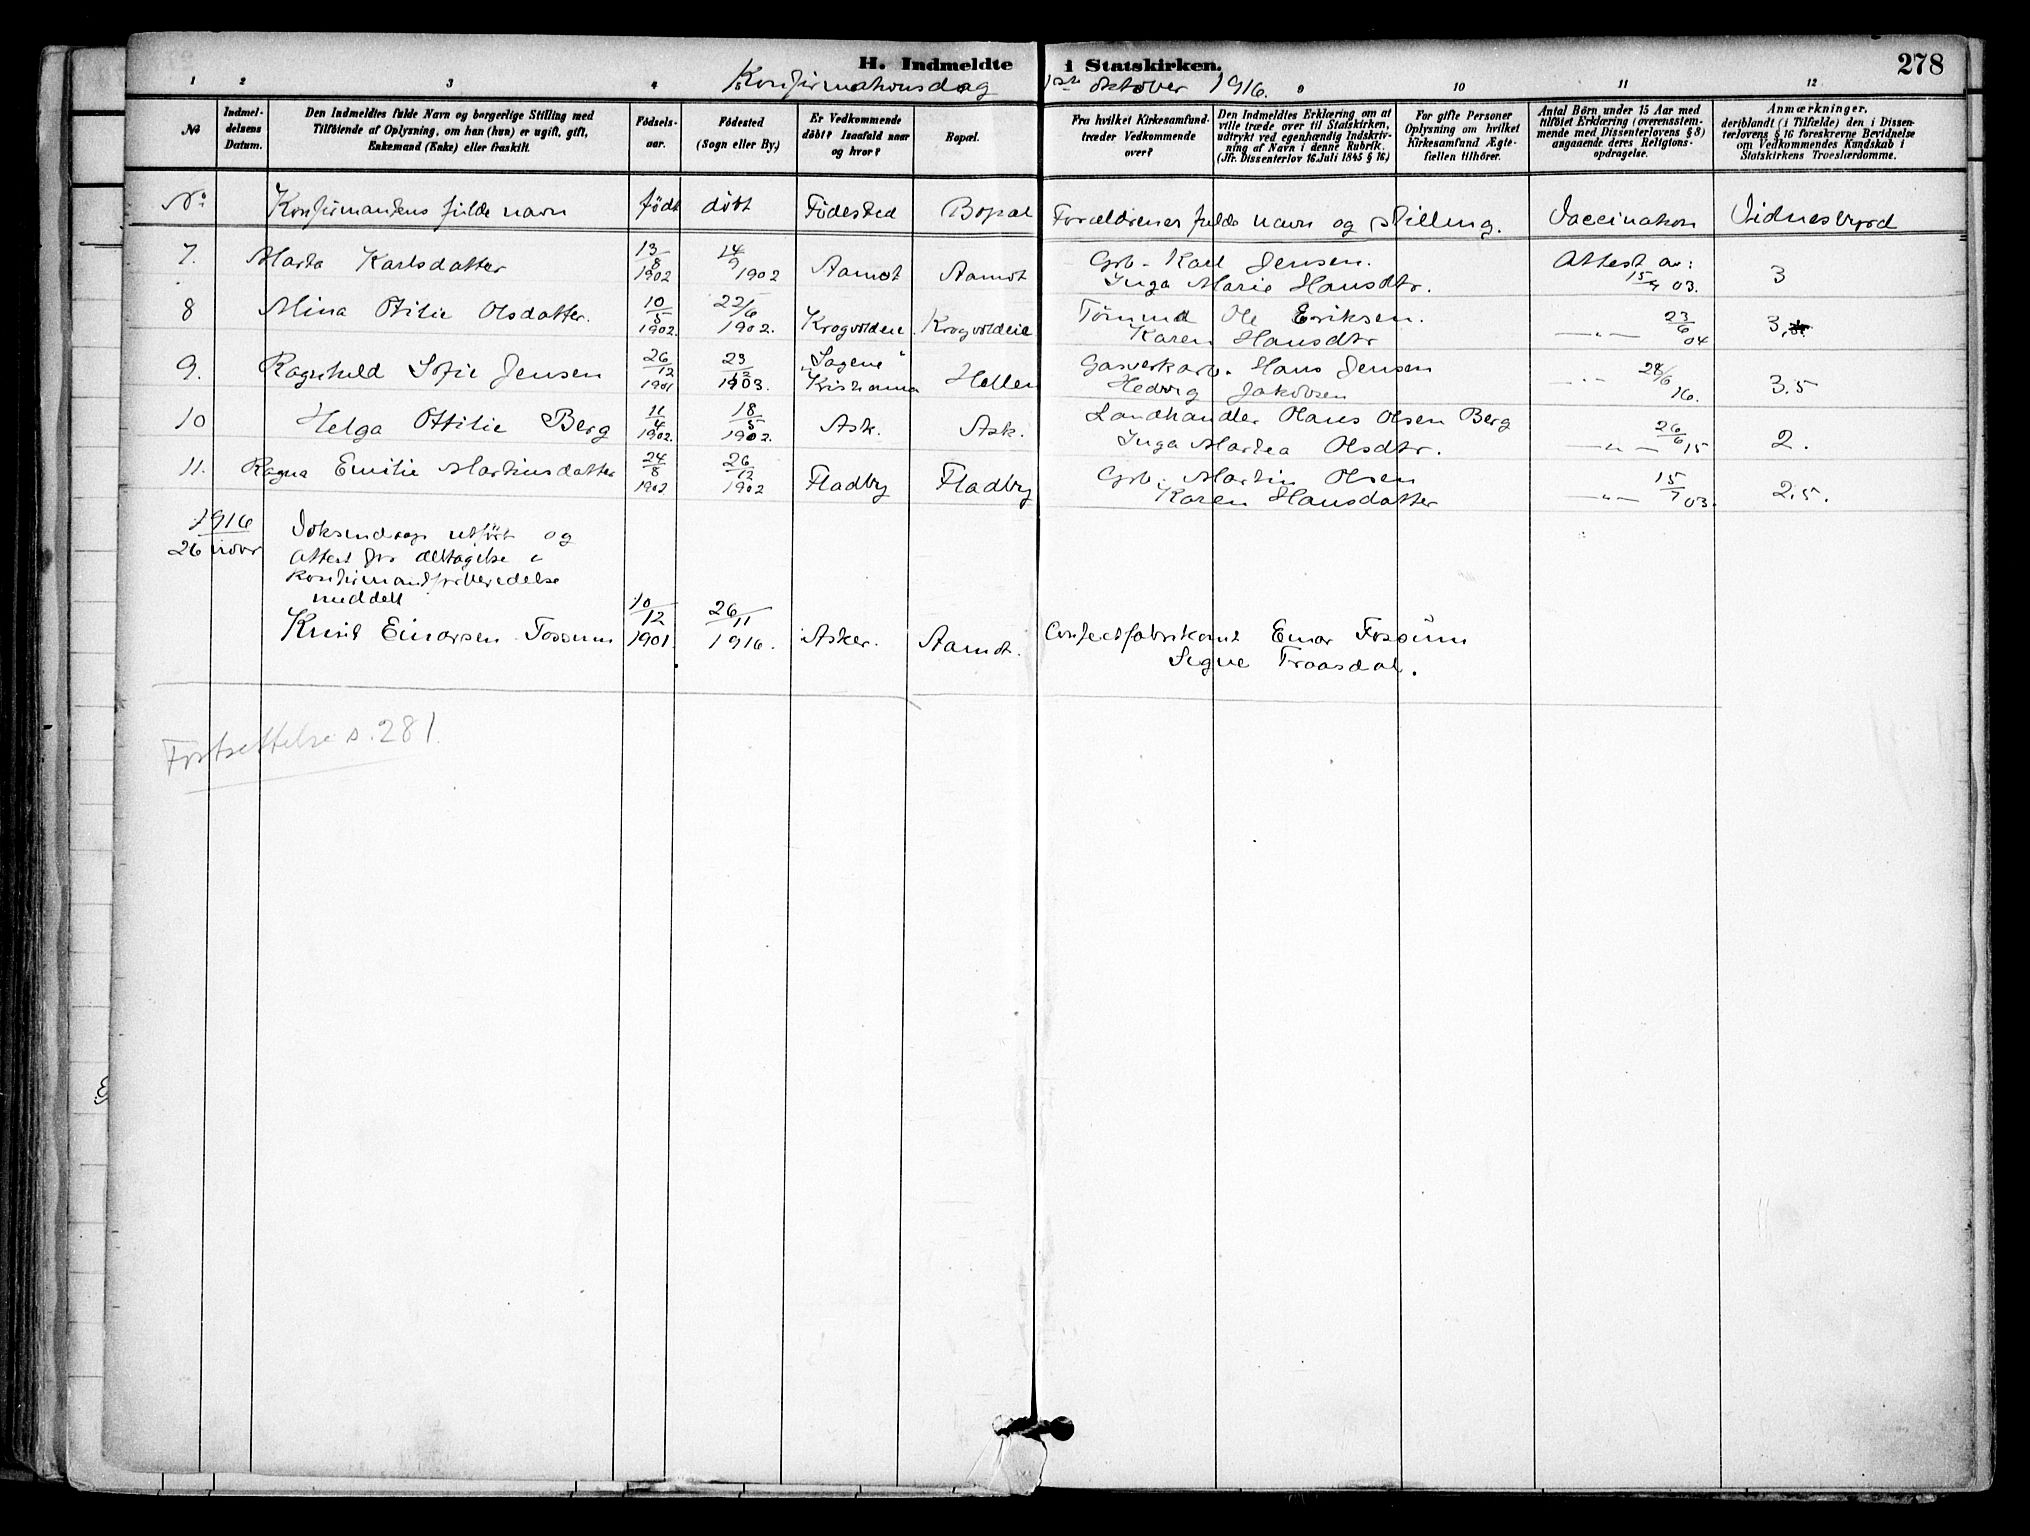 H. Indmeldte i Statskirken. 278
Konfirmationsdag 1ste oktober 1916.
1 2 3 4 9 10 11 12
№
Indmel-
delsens
Datum.
Den Indmeldtes fulde Navn og borgerlige Stilling med
Tilføiende af Oplysning, om han (hun) er ugift, gift,
Enkemand (Enke) eller fraskilt.
Fødsels-
aar.
Fødested
(Sogn eller By.)
Er Vedkommende
døbt? Isaafald naar
og hvor?
Bopæl.
Fra hvilket Kirkesamfund-
træder Vedkommende
over?
Den Indmeldtes Erklæring om at
ville træde over til Statskirken,
udtrykt ved egenhændig Indskriv-
ning af Navn i denne Rubrik.
(Jfr. Dissenterlov 16 Juli 1845 § 16.)
For gifte Personer
Oplysning om hvilket
Kirkesamfund Ægte-
fællen tilhører.
Antal Børn under 15 Aar med
tilføiet Erklæring (overensstem-
mende med Dissenterlovens § 8)
angaaende deres Religions-
opdragelse.
Anmærkninger,
deriblandt (i Tilfælde) den i Dissen-
terlovens § 16 foreskrevne Bevidnelse
om Vedkommendes Kundskab i
Statskirkens Troeslærdomme.
No Konfirmantens fulde navn født døbt Födested Bopæl Forældrenes fulde navn og stilling. Vaccination Vidnesbyrd
7. Marta Karlsdatter 13/8 1902 14/9 1902 Aamot Aamot Grb. Karl Jensen. Attest av:
Inga Marie Hansdtr. 15/4 03. 3
8 Mina Otilie Olsdatter. 10/5 1902. 22/6 1902. Krogvoldeie Krogvoldeie Tømmd Ole Eriksen.
Karen Hansdtr —„— 23/6 04 3.
9. Ragnhild Sofie Jensen 26/12 1901 23/12 1903. "Sagene" Kristiania Hellen Gasverkarb. Hans Jensen
Hedvig Jakobsen —„— 28/6 16. 3.5
10 Helga Ottilie Berg 11/4 1902. 18/5 1902. Ask. Ask. Landhandler Hans Olsen Berg
Inga Martea Olsdtr. —„— 26/6 15 2.
11. Ragna Emilie Martinsdatter 24/8 1902 26/12 1902 Fladby Fladby Grb. Martin Olsen
Karen Hansdatter —„— 15/7 03. 2.5.
1916
26 novbr
Voksendaap utført og
attest for deltagelse i
konfirmantforberedelse
meddelt
Knut Einarsen Fossum 10/12 1901. 26/11 1916. Asker. Aamot. Confectfabrikant Einar Fossum
Signe Traasdal.
Fortsettelse s. 281.